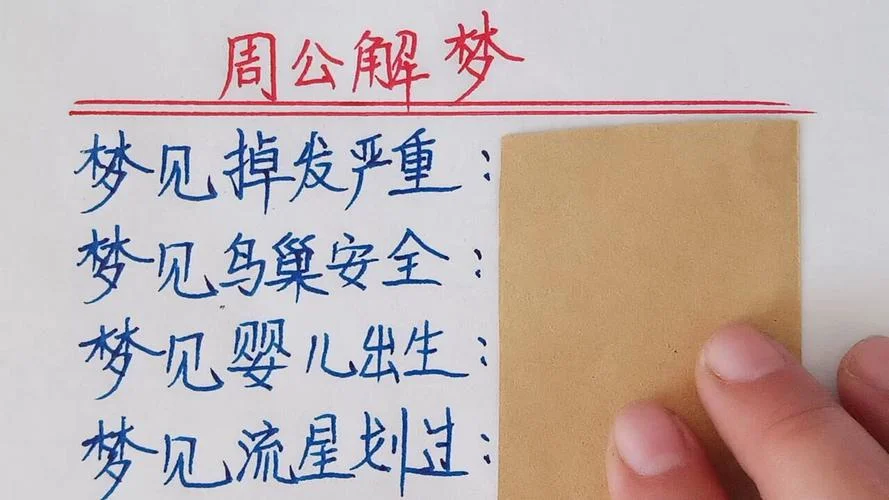 周公解梦
梦见掉发严重：
梦见鸟巢安全：
梦见婴儿出生：
梦见流星划过：